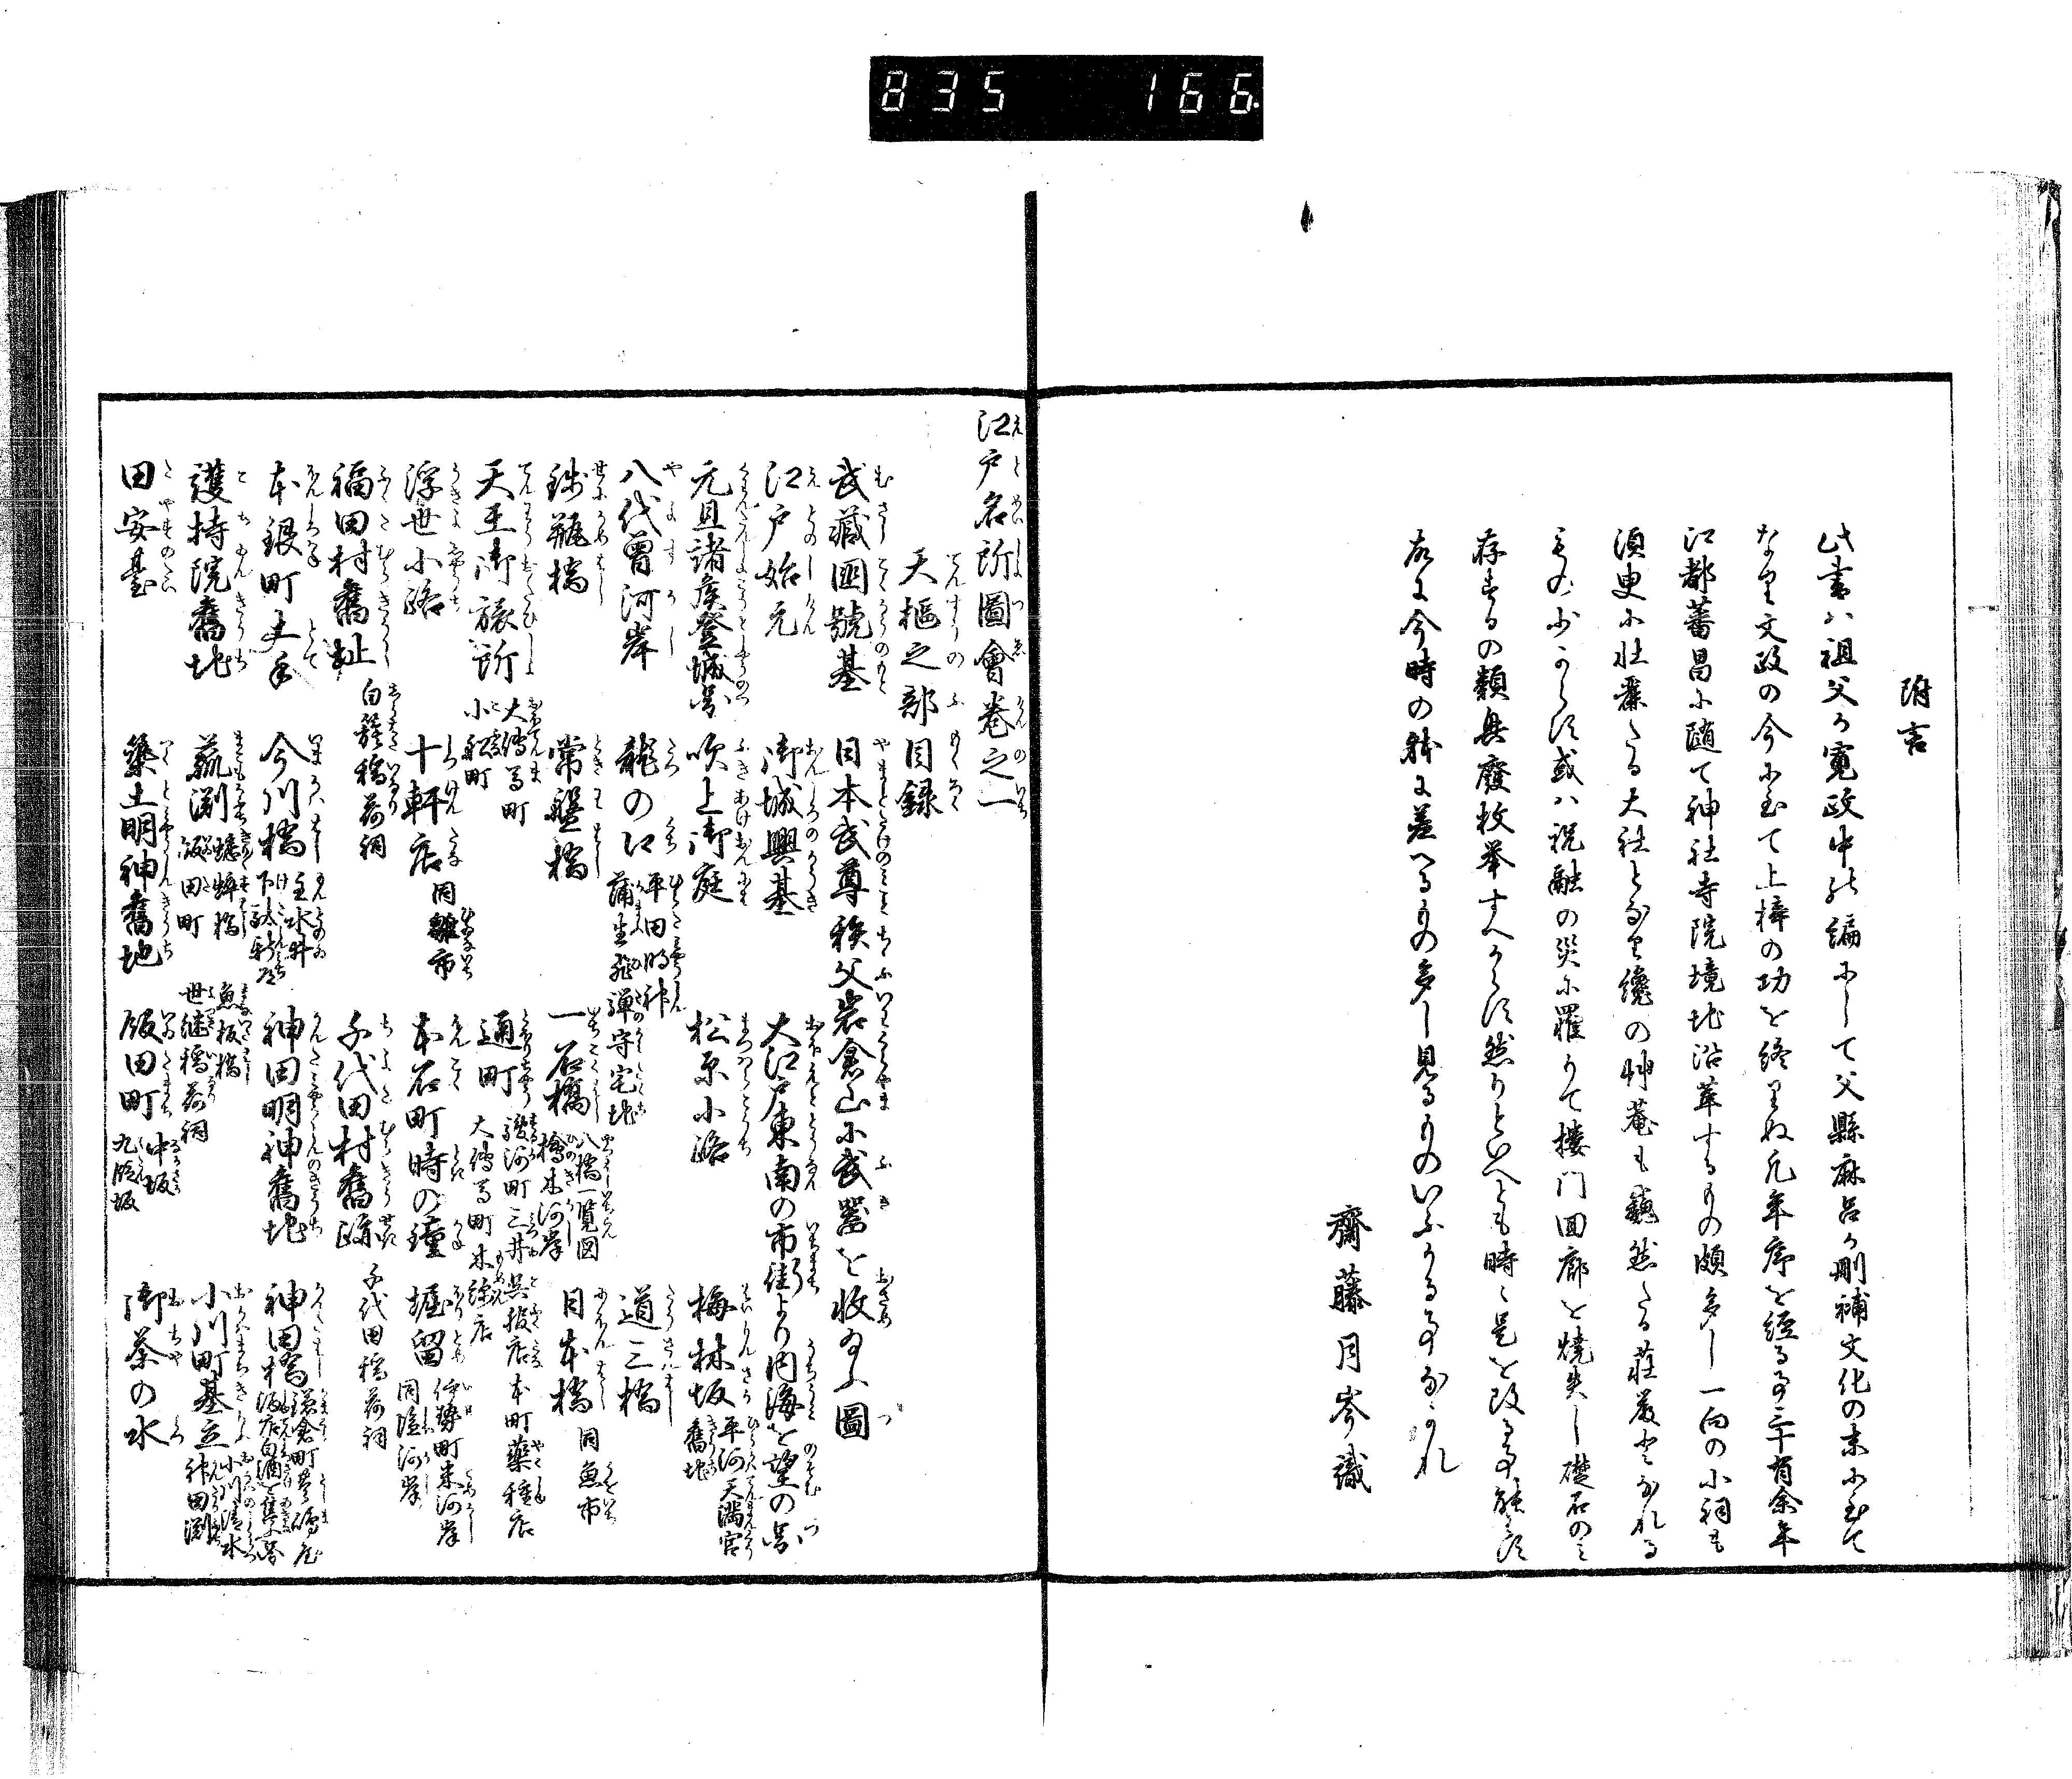 835 166
附言
此書ハ祖父が寛政中の編にして父縣麻呂が刪補文化の末に至て
なり文政の今に至て上梓の功を終りぬ凡年序を経る事三十有余年
江都蕃昌に随て神社寺院境地沿革するもの頗多し一向の小祠も
須臾に壮麗たる大社となり纔の艸菴も巍然たる荘厳となれる
もの少からす或ハ祝融の災に罹りて楼門回廊を焼失し礎石のミ
存するの類興廃枚挙すへからす然りといへとも時〻是を改る事能はす
故に今時の躰に差へるもの多し見るものいふかる事なかれ
齋藤月岑識
江戸名所圖會巻之一
天樞之部目録
武蔵國號基
日本武尊秩父岩倉山に武器を収給ふ圖
江戸始元
御城興基
大江戸東南の市街より内海を望の圖
元旦諸侯登城圖
吹上御庭
松原小路
梅林坂 平河天満宮舊地
八代曽河岸
龍の口 平田明神 蒲生飛騨守宅地
道三橋
銭瓶橋
常盤橋
一石橋 八橋一覧図 檜木河岸
日本橋 同魚市
天王御旅所 大傳馬町 小舩町
通町 駿河町三井呉服店 本町薬種店 大傳馬町木綿店
浮世小路
十軒店 同雛市
本石町時の鐘
堀留 伊勢町米河岸 同塩河岸
福田村舊址 白籏稲荷祠
千代田村舊蹟 千代田稲荷祠
本銀町土手
今川橋 主水井 下駄新道
神田明神舊地
神田橋 鎌倉町 豊島屋酒店白酒を售ふ圖
護持院舊地
蔬渕 蟋蟀橋 飯田町 魚板橋 世継稲荷祠
小川町基立 小川清水 神田渕
田安臺
築土明神舊地
飯田町 中坂 九段坂
御茶の水